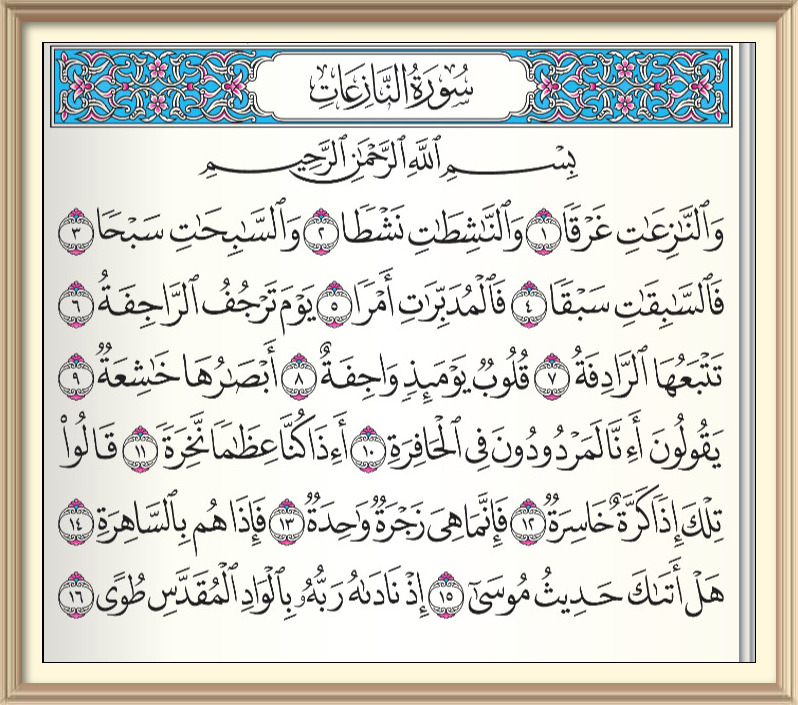 سُورَةُ النَّازِعَاتِ
بِسْمِ ٱللَّهِ ٱلرَّحْمَٰنِ ٱلرَّحِيمِ
وَٱلنَّٰزِعَٰتِ غَرْقٗا ١ وَٱلنَّٰشِطَٰتِ نَشْطٗا ٢ وَٱلسَّٰبِحَٰتِ سَبْحٗا ٣
فَٱلسَّٰبِقَٰتِ سَبْقٗا ٤ فَٱلْمُدَبِّرَٰتِ أَمْرٗا ٥ يَوْمَ تَرْجُفُ ٱلرَّاجِفَةُ ٦
تَتْبَعُهَا ٱلرَّادِفَةُ ٧ قُلُوبٞ يَوْمَئِذٖ وَاجِفَةٌ ٨ أَبْصَٰرُهَا خَٰشِعَةٞ ٩
يَقُولُونَ أَءِنَّا لَمَرْدُودُونَ فِي ٱلْحَافِرَةِ ١٠ أَءِذَا كُنَّا عِظَٰمٗا نَّخِرَةٗ ١١ قَالُواْ
تِلْكَ إِذٗا كَرَّةٌ خَاسِرَةٞ ١٢ فَإِنَّمَا هِيَ زَجْرَةٞ وَٰحِدَةٞ ١٣ فَإِذَا هُم بِٱلسَّاهِرَةِ ١٤
هَلْ أَتَىٰكَ حَدِيثُ مُوسَىٰٓ ١٥ إِذْ نَادَىٰهُ رَبُّهُۥ بِٱلْوَادِ ٱلْمُقَدَّسِ طُوًى ١٦